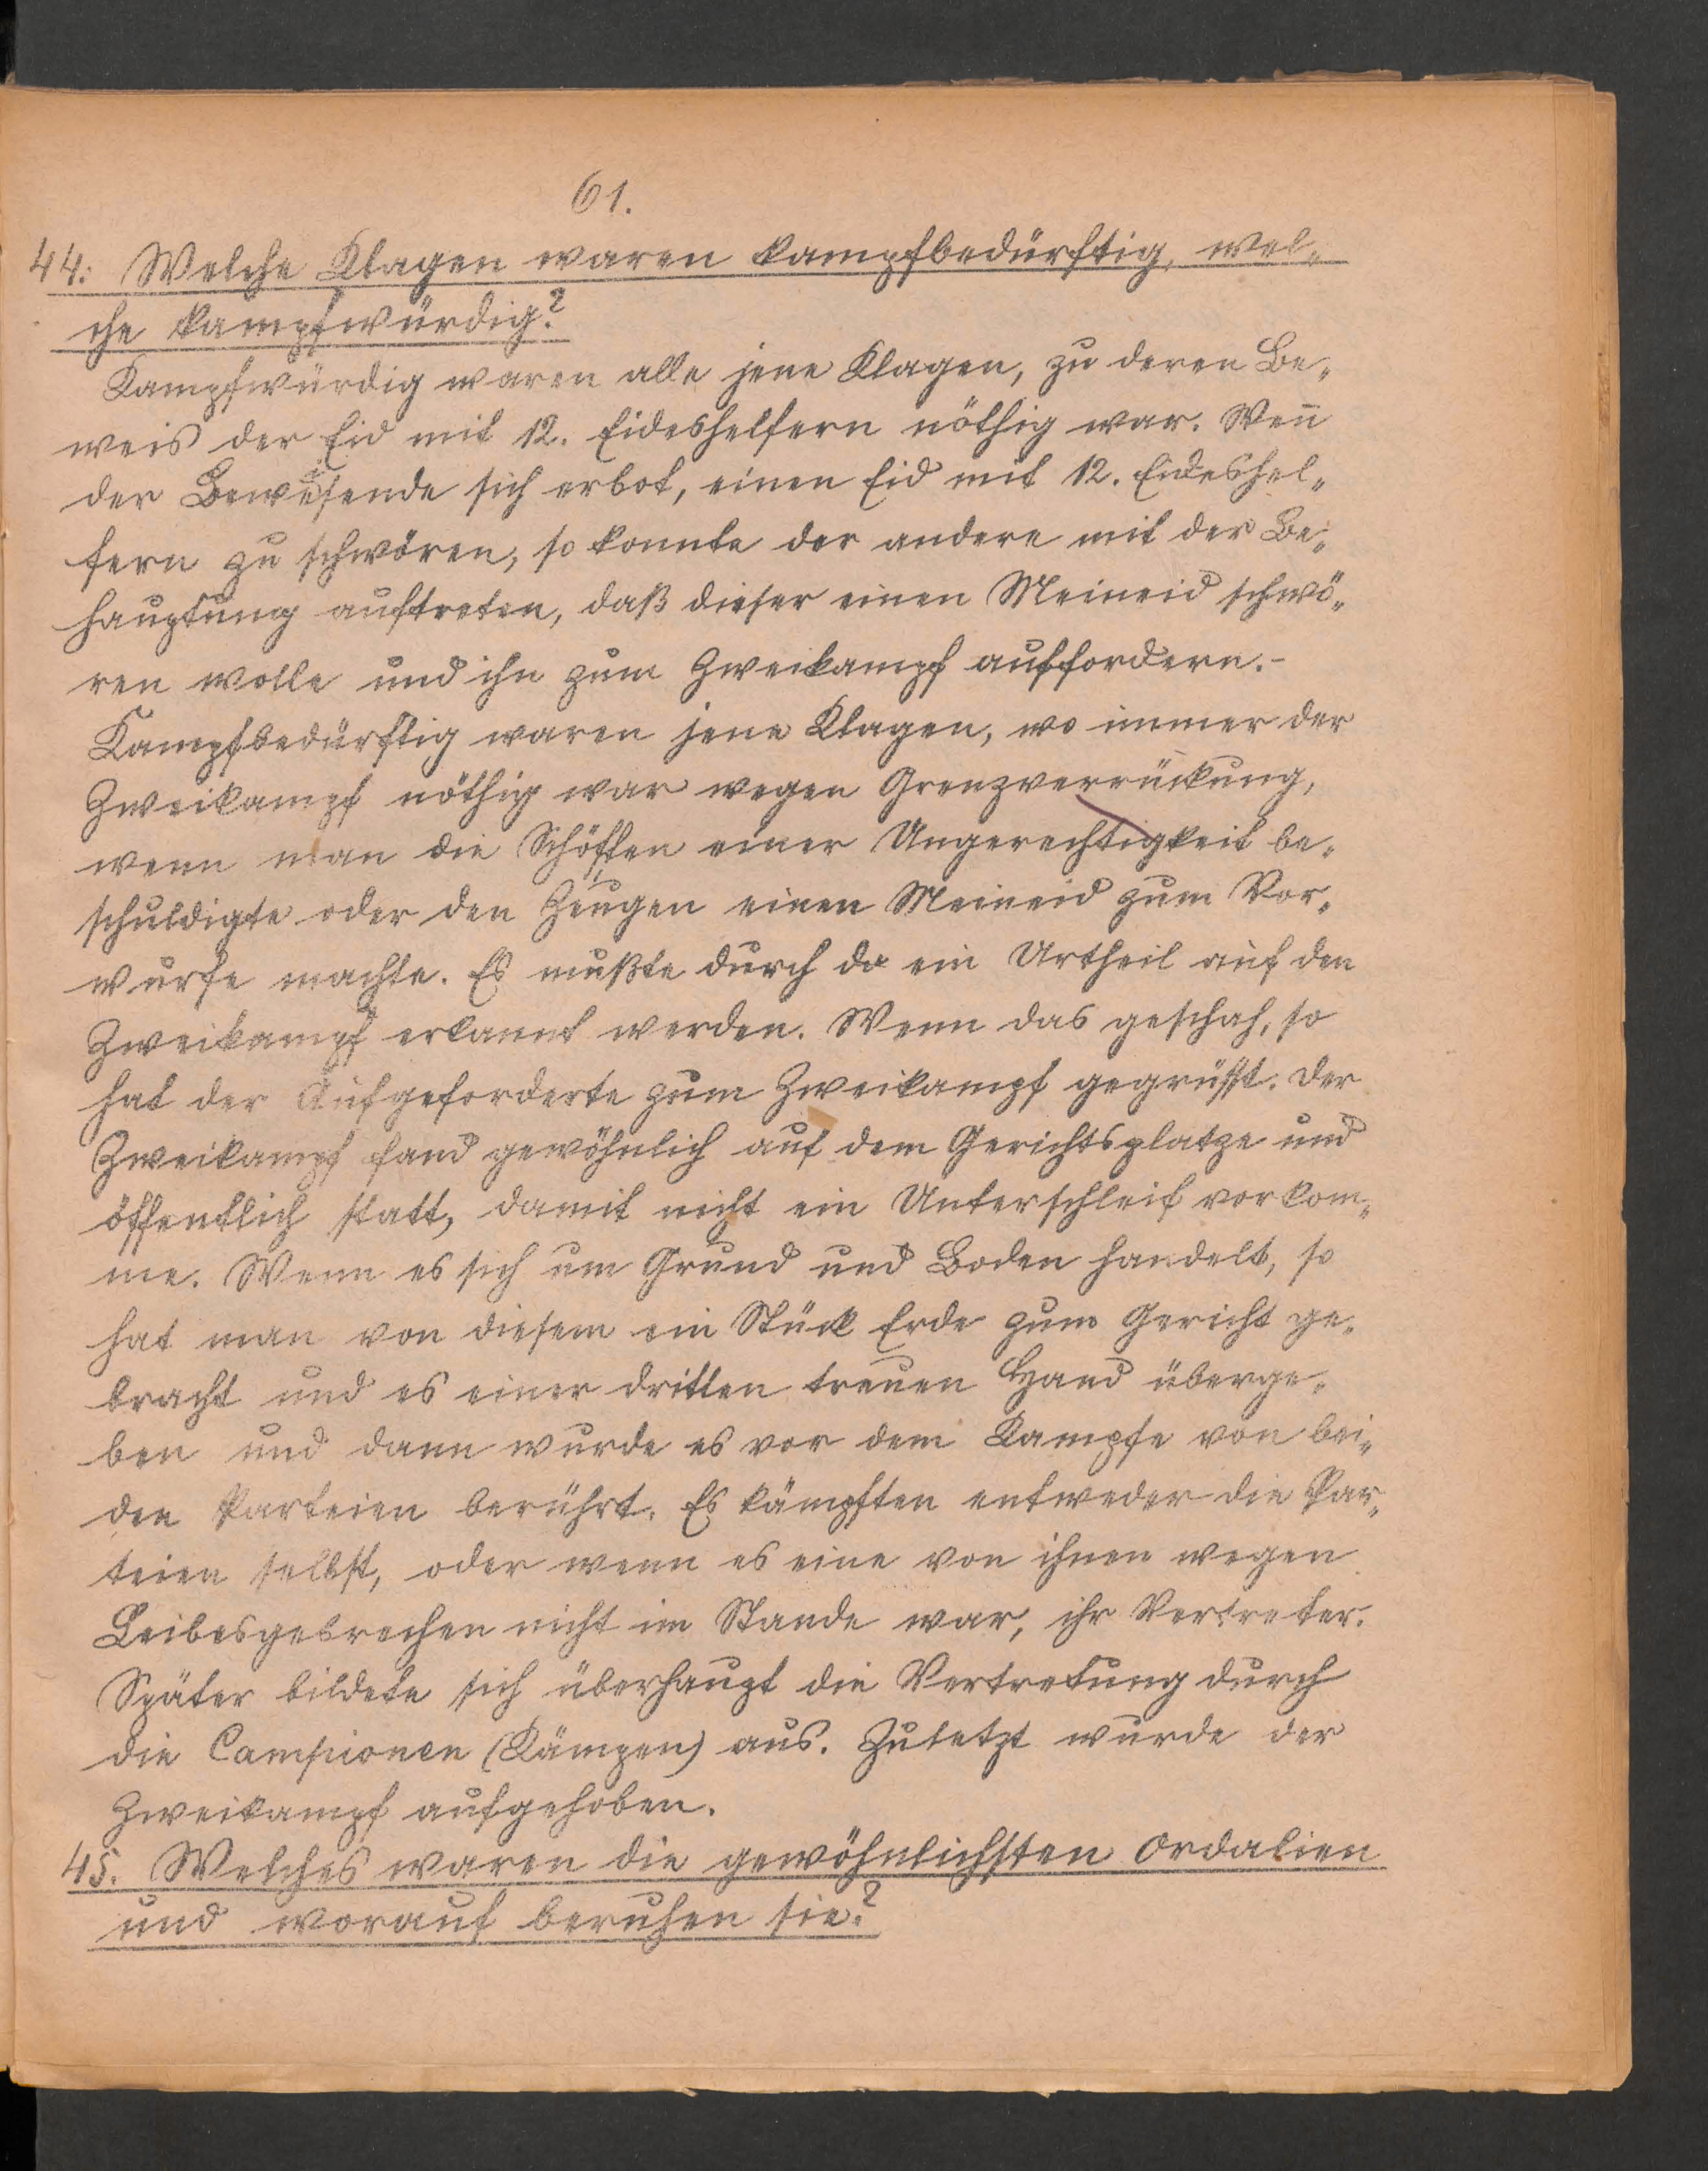 61.
44. Welche Klagen waren kampfbedürftig, wel-
che kampfwürdig?
Kampfwürdig waren alle jene Klagen, zu deren Be-
weis der Eid mit 12. Eideshelfern nöthig war. Wen̄
der Beweisende sich erbot, einen Eid mit 12. Eideshel-
fern zu schwören, so konnte der andere mit der Be-
hauptung auftreten, daß dieser einen Meineid schwö-
ren wolle und ihn zum Zweikampf auffordern.-
Kampfbedürftig waren jene Klagen, wo immer der
Zweikampf nöthig war wegen Grenzverrückung,
wenn man die Schöffen einer Ungerechtigkeit be-
schuldigte oder den Zeugen einen Meineid zum Vor-
wurfe machte. Es mußte durch da ein Urtheil auf den
Zweikampf erkannt werden. Wenn das geschah, so
hat der Aufgeforderte zum Zweikampf gegrüsst. Der
Zweikampf fand gewöhnlich auf dem Gerichtsplatze und
öffentlich statt, damit nicht ein Unterschleif vorkom-
me. Wenn es sich um Grund und Boden handelt, so
hat man von diesem ein Stück Erde zum Gericht ge-
bracht und es einer dritten treuen Hand überge-
ben und dann wurde es vor dem Kampfe von bei-
den Parteien berührt. Es kämpften entweder die Par-
teien selbst, oder wenn es eine von ihnen wegen
Leibesgebrechen nicht im Stande war, ihr Vertreter.
Später bildete sich überhaupt die Vertretung durch
die Campionen (Kämpen) aus. Zuletzt wurde der
Zweikampf aufgehoben.
45. Welches waren die gewöhnlichsten Ordalien
und worauf beruhen sie?